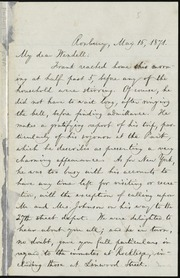 Roxbury, May 15, 1871.
My dear Wendell:
Frank reached home this morn-
ing at half past 5, before any of the
household were stirring. Of course, he
did not have to wait long, after ringing
the bell, before finding admittance. He
makes a gratifying report of his trip, par-
ticularly of his sojourn at the Park,
which he describes as presenting a very
charming appearance. As for New York,
he was too busy with his accounts to
have any time left for visiting or recre-
ation, with the exception of calling upon
Mr. and Mrs. Johnson on his way to the
27th street depot. We are delighted to
hear about you all; and he in turn,
no doubt, gave you full particulars in
regard to the inmates at Rockledge, in-
cluding those at Linwood street.